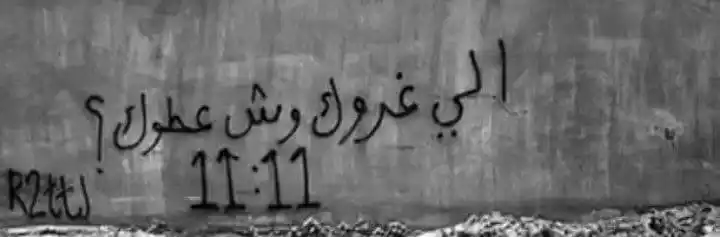 الي غروك وش عطوك؟
11:11
R2ttJ